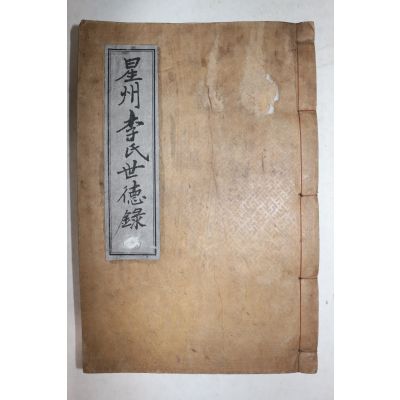 星州李氏世德錄